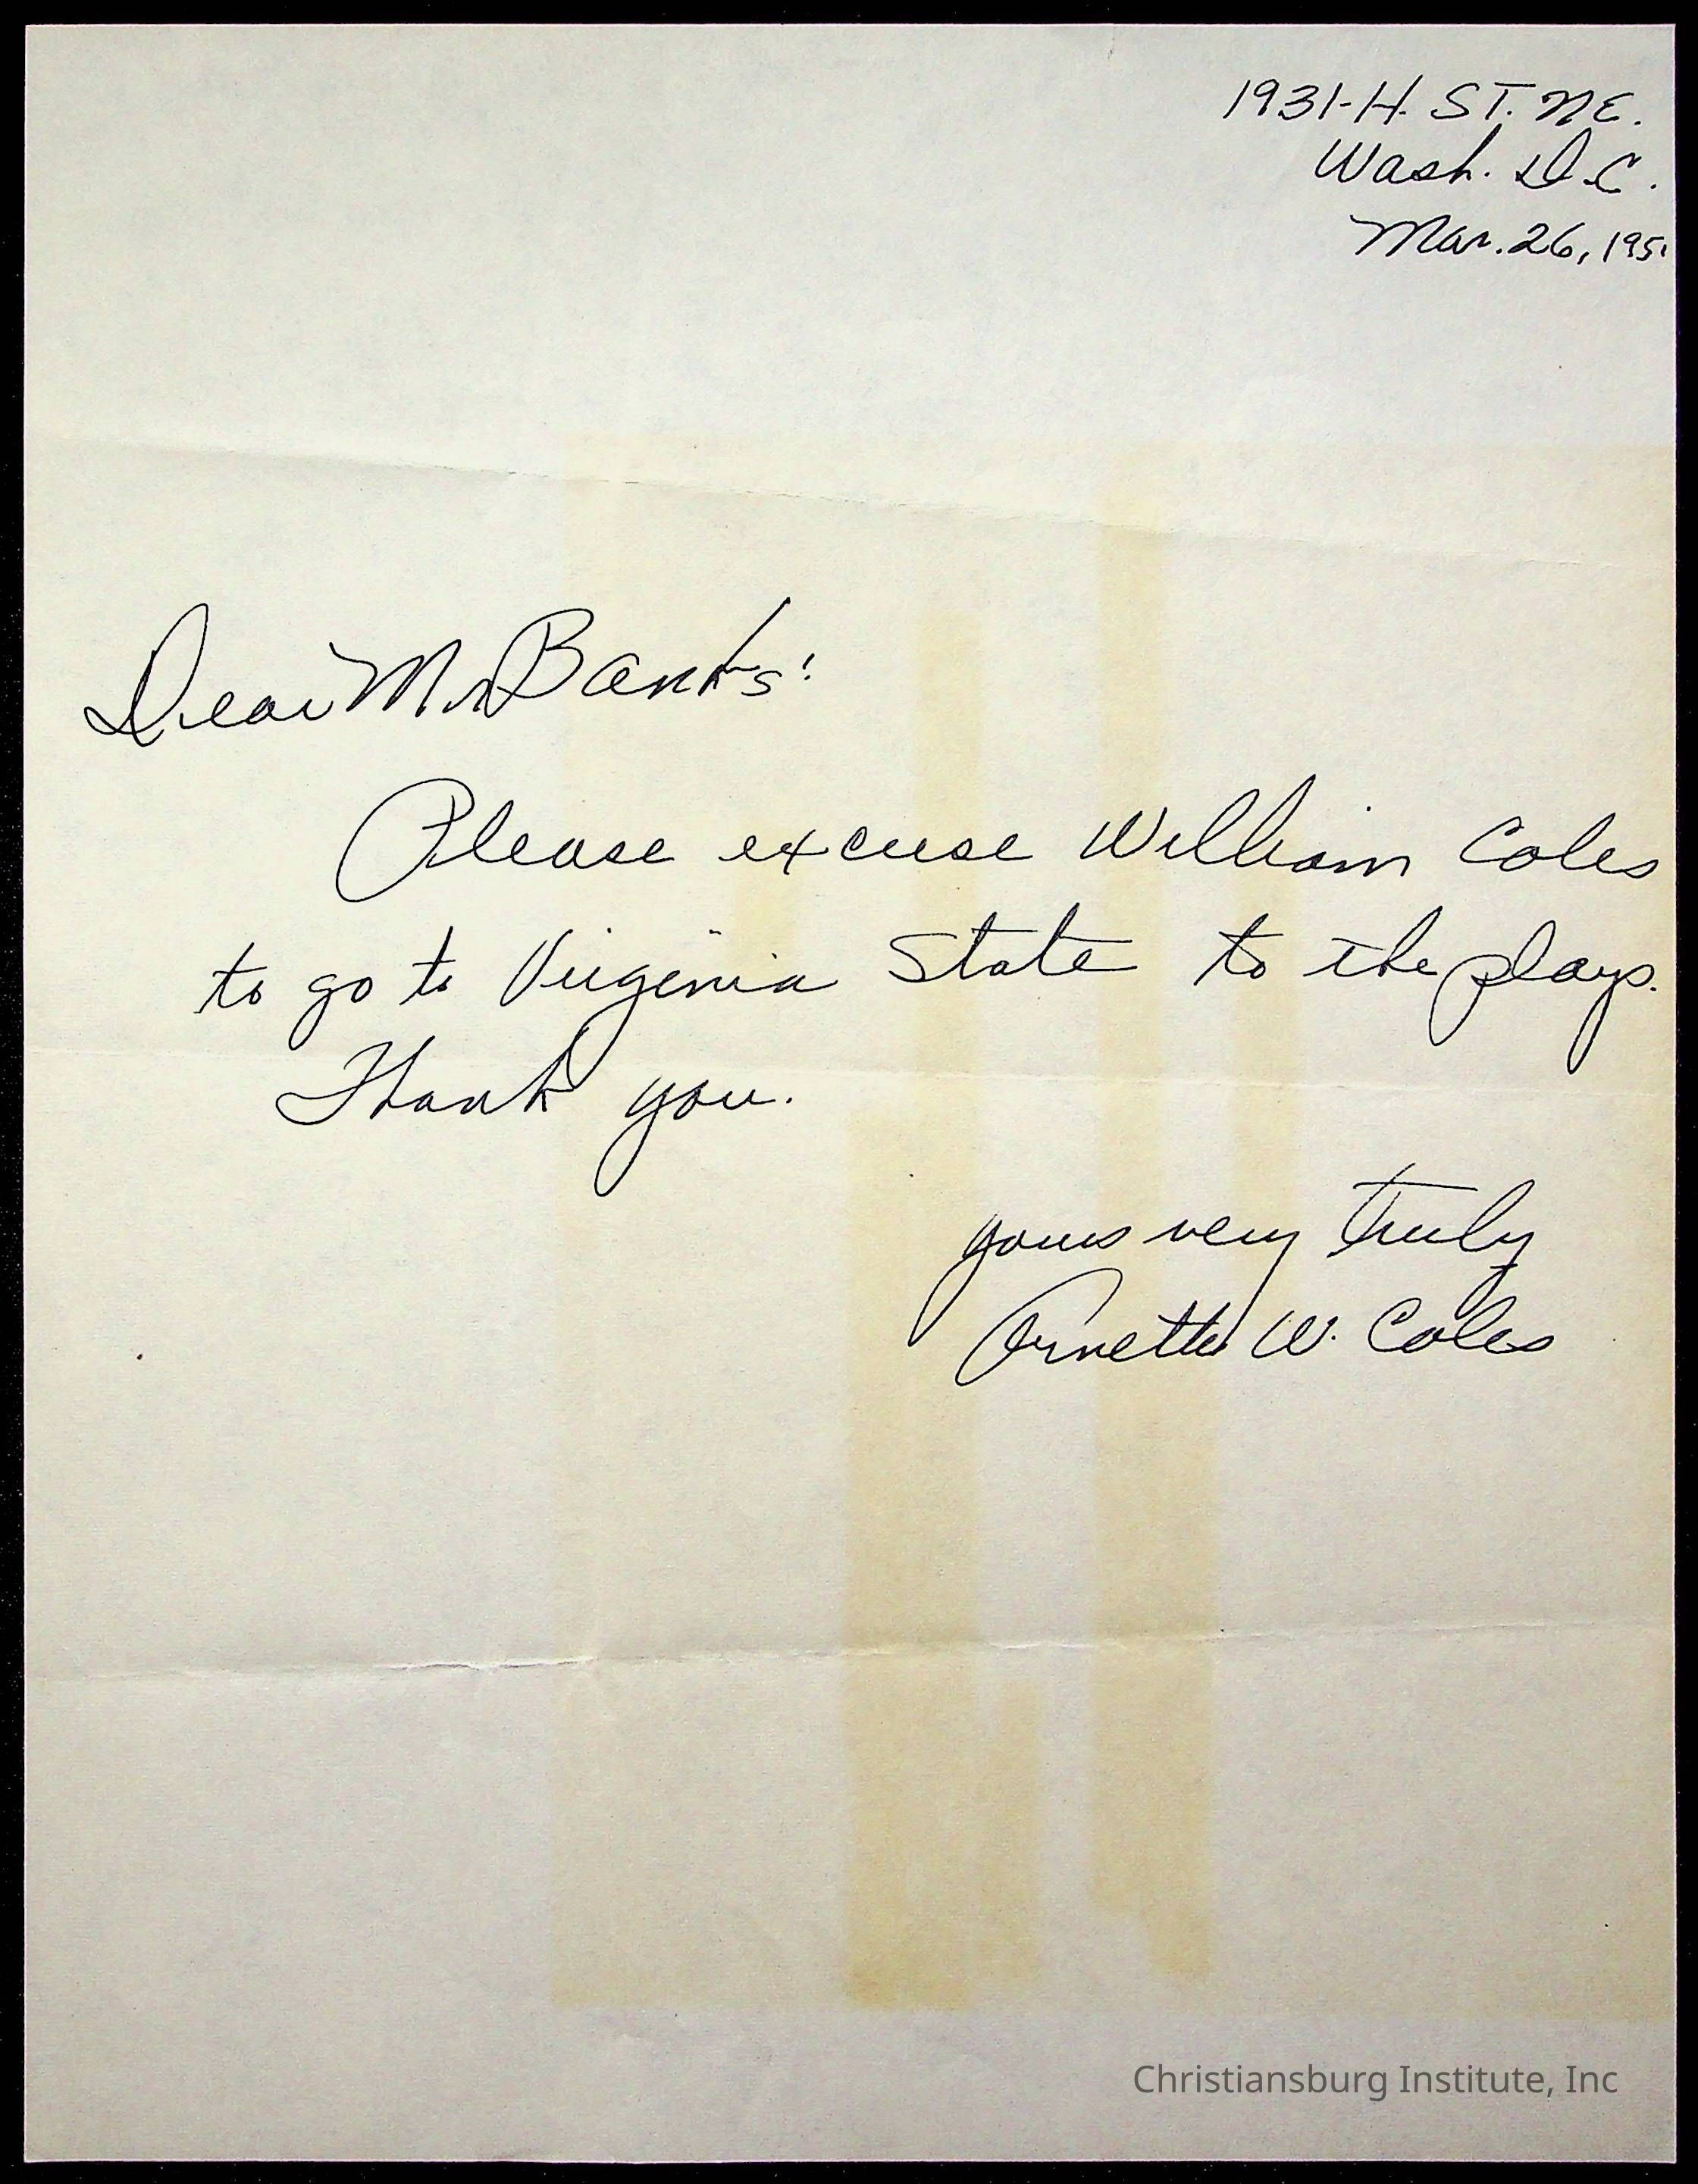 1931-H. ST. NE.
Wash. D.C.
Mar. 26, 1951
Dear Mr Banks:
Please excuse William Coles
to go to Virginia State to the plays.
Thank you.
yours very truly
Ornette W. Coles
Christiansburg Institute, Inc